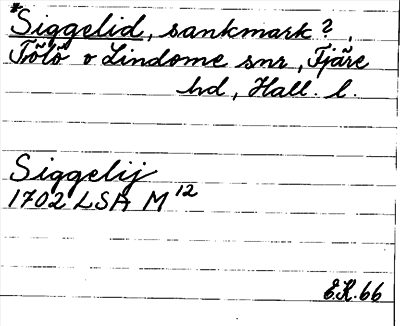 *Siggelid, sankmark?,
Fölö v Lindome snr, Fjäre
hd, Hall. l.
Siggelij
1702 LSA M 12
E.K. 66